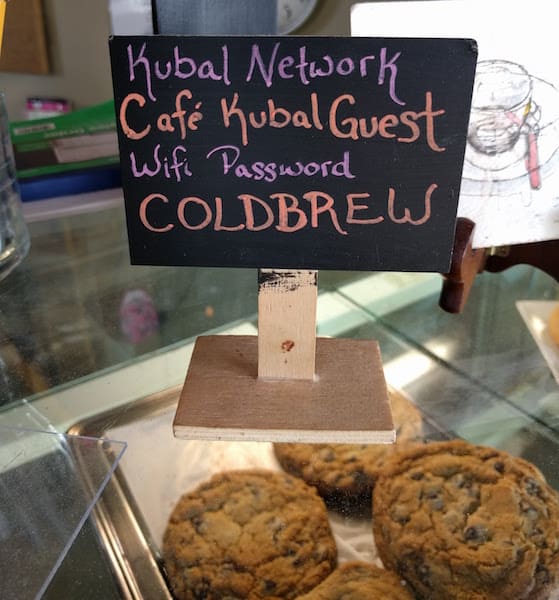 Kubal Network
Café Kubal Guest
Wifi Password
COLDBREW